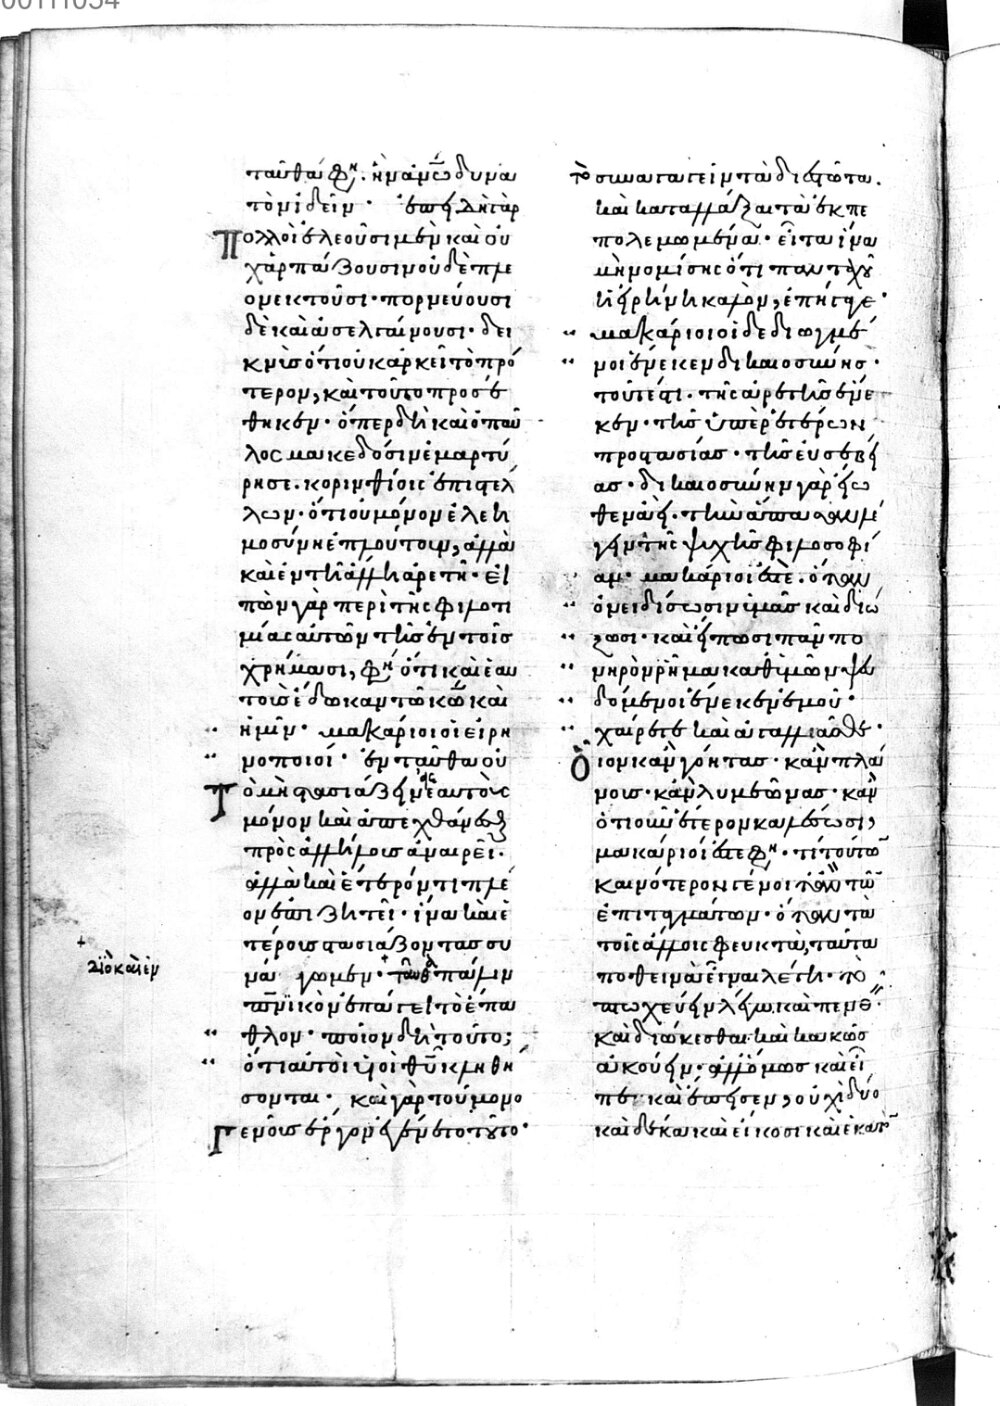 00111054
ταῦθά φη. ἡμᾶς δυνα
τὸν ἰδεῖν. ἐπειδὴ γὰρ
πολλοὶ ἐλεοῦσι μὲν καὶ οὐ
χ ἁρπάζουσιν οὐδὲ πλε
ονεκτοῦσι. πορνεύουσι
δὲ καὶ ἀσελγαίνουσι. δει
κνὺς ὅτι οὐκ ἀρκεῖ τὸ πρό
τερον, καὶ τοῦτο προσέ
θηκεν. ὅπερ δὴ καὶ ὁ παῦ
λος μακεδόσιν ἐμαρτύ
ρησε. κορινθίοις ἐπιστέλ
λων. ὅτι οὐ μόνον ἐλεη
μοσύνη ἐπλούτουν, ἀλλὰ
καὶ ἐν τῆ ἄλλη ἀρετῆ. εἰ
πὼν γὰρ περὶ τῆς φιλοτι
μίας αὐτῶν τῆς ἐν τοῖς
χρήμασι, φη ὅτι καὶ ἑαυ
τοὺς ἔδωκαν τῶ κω καὶ
ἡμῖν. μακάριοι οἱ εἰρη
νοποιοί. ἐνταῦθα οὐ
τὸ μὴ στασιάζειν ἑαυτοὺς
μόνον καὶ ἀπεχθάνεσθαι
πρὸς ἀλλήλους ἀναιρεῖ.
ἀλλὰ καὶ ἕτερόν τι πλέ
ον ἐπιζητεῖ. ἵνα καὶ ἑ
τέρους στασιάζοντας συ
νάγωμεν. καὶ πάλιν
διὸ καὶ ἐν
πνικὸν ἐπάγει τὸ ἔπα
θλον. ποῖον δὴ τοῦτο;
ὅτι αὐτοὶ υἱοὶ θυ κληθή
σονται. καὶ γὰρ τοῦ μονο
γενοῦς ἔργον ἐγένετο τοῦτο.
τὸ συναγαγεῖν τὰ διεστῶτα.
καὶ καταλλάξαι τὰ ἐκπε
πολεμωμένα. εἶτα ἵνα
μὴ νομίσης ὅτι πανταχοῦ
ἡ εἰρήνη καλὸν, ἐπήγαγε.
μακάριοι οἱ δεδιωγμέ
νοι ἕνεκεν δικαιοσύνης.
τουτέστι. τῆς ἀρετῆς ἕνε
κεν. τῆς ὑπὲρ ἑτέρων
προστασίας. τῆς εὐσεβεί
ας. δικαιοσύνην γὰρ ἔθω
θεν ἀεὶ. τὴν ἅπασαν λέ
γειν τῆς ψυχῆς φιλοσοφί
αν. μακάριοί ἐστε. ὅταν
ὀνειδίσωσιν ὑμᾶς καὶ διώ
ξωσι. καὶ εἴπωσι πᾶν πο
νηρὸν ῥῆμα καθ' ὑμῶν ψευ
δόμενοι ἕνεκεν ἐμοῦ.
χαίρετε καὶ ἀγαλλιᾶσθε.
ὅιον κἂν γόητας. κἂν πλά
νους. κἂν λυμεῶνας. κἂν
ὁτιοῦν ἕτερον καλέσωσι,
μακάριοί ἐστέ φη. τί τούτων
καινότερον γένοιτ' ἂν τῶν
ἐπιταγμάτων. ὅταν τὰ
τοῖς ἄλλοις φευκτὰ, ταῦτα
ποθεινὰ εἶναι λέγη. τὸ
πτωχεύειν λέγω καὶ πενθεῖν
καὶ διώκεσθαι καὶ κακῶς
ἀκούειν. ἀλλ' ὅμως καὶ εἶ
πε. καὶ ἔπεισεν, οὐχὶ δύο
καὶ δέκα καὶ εἴκοσι καὶ ἑκατὸν